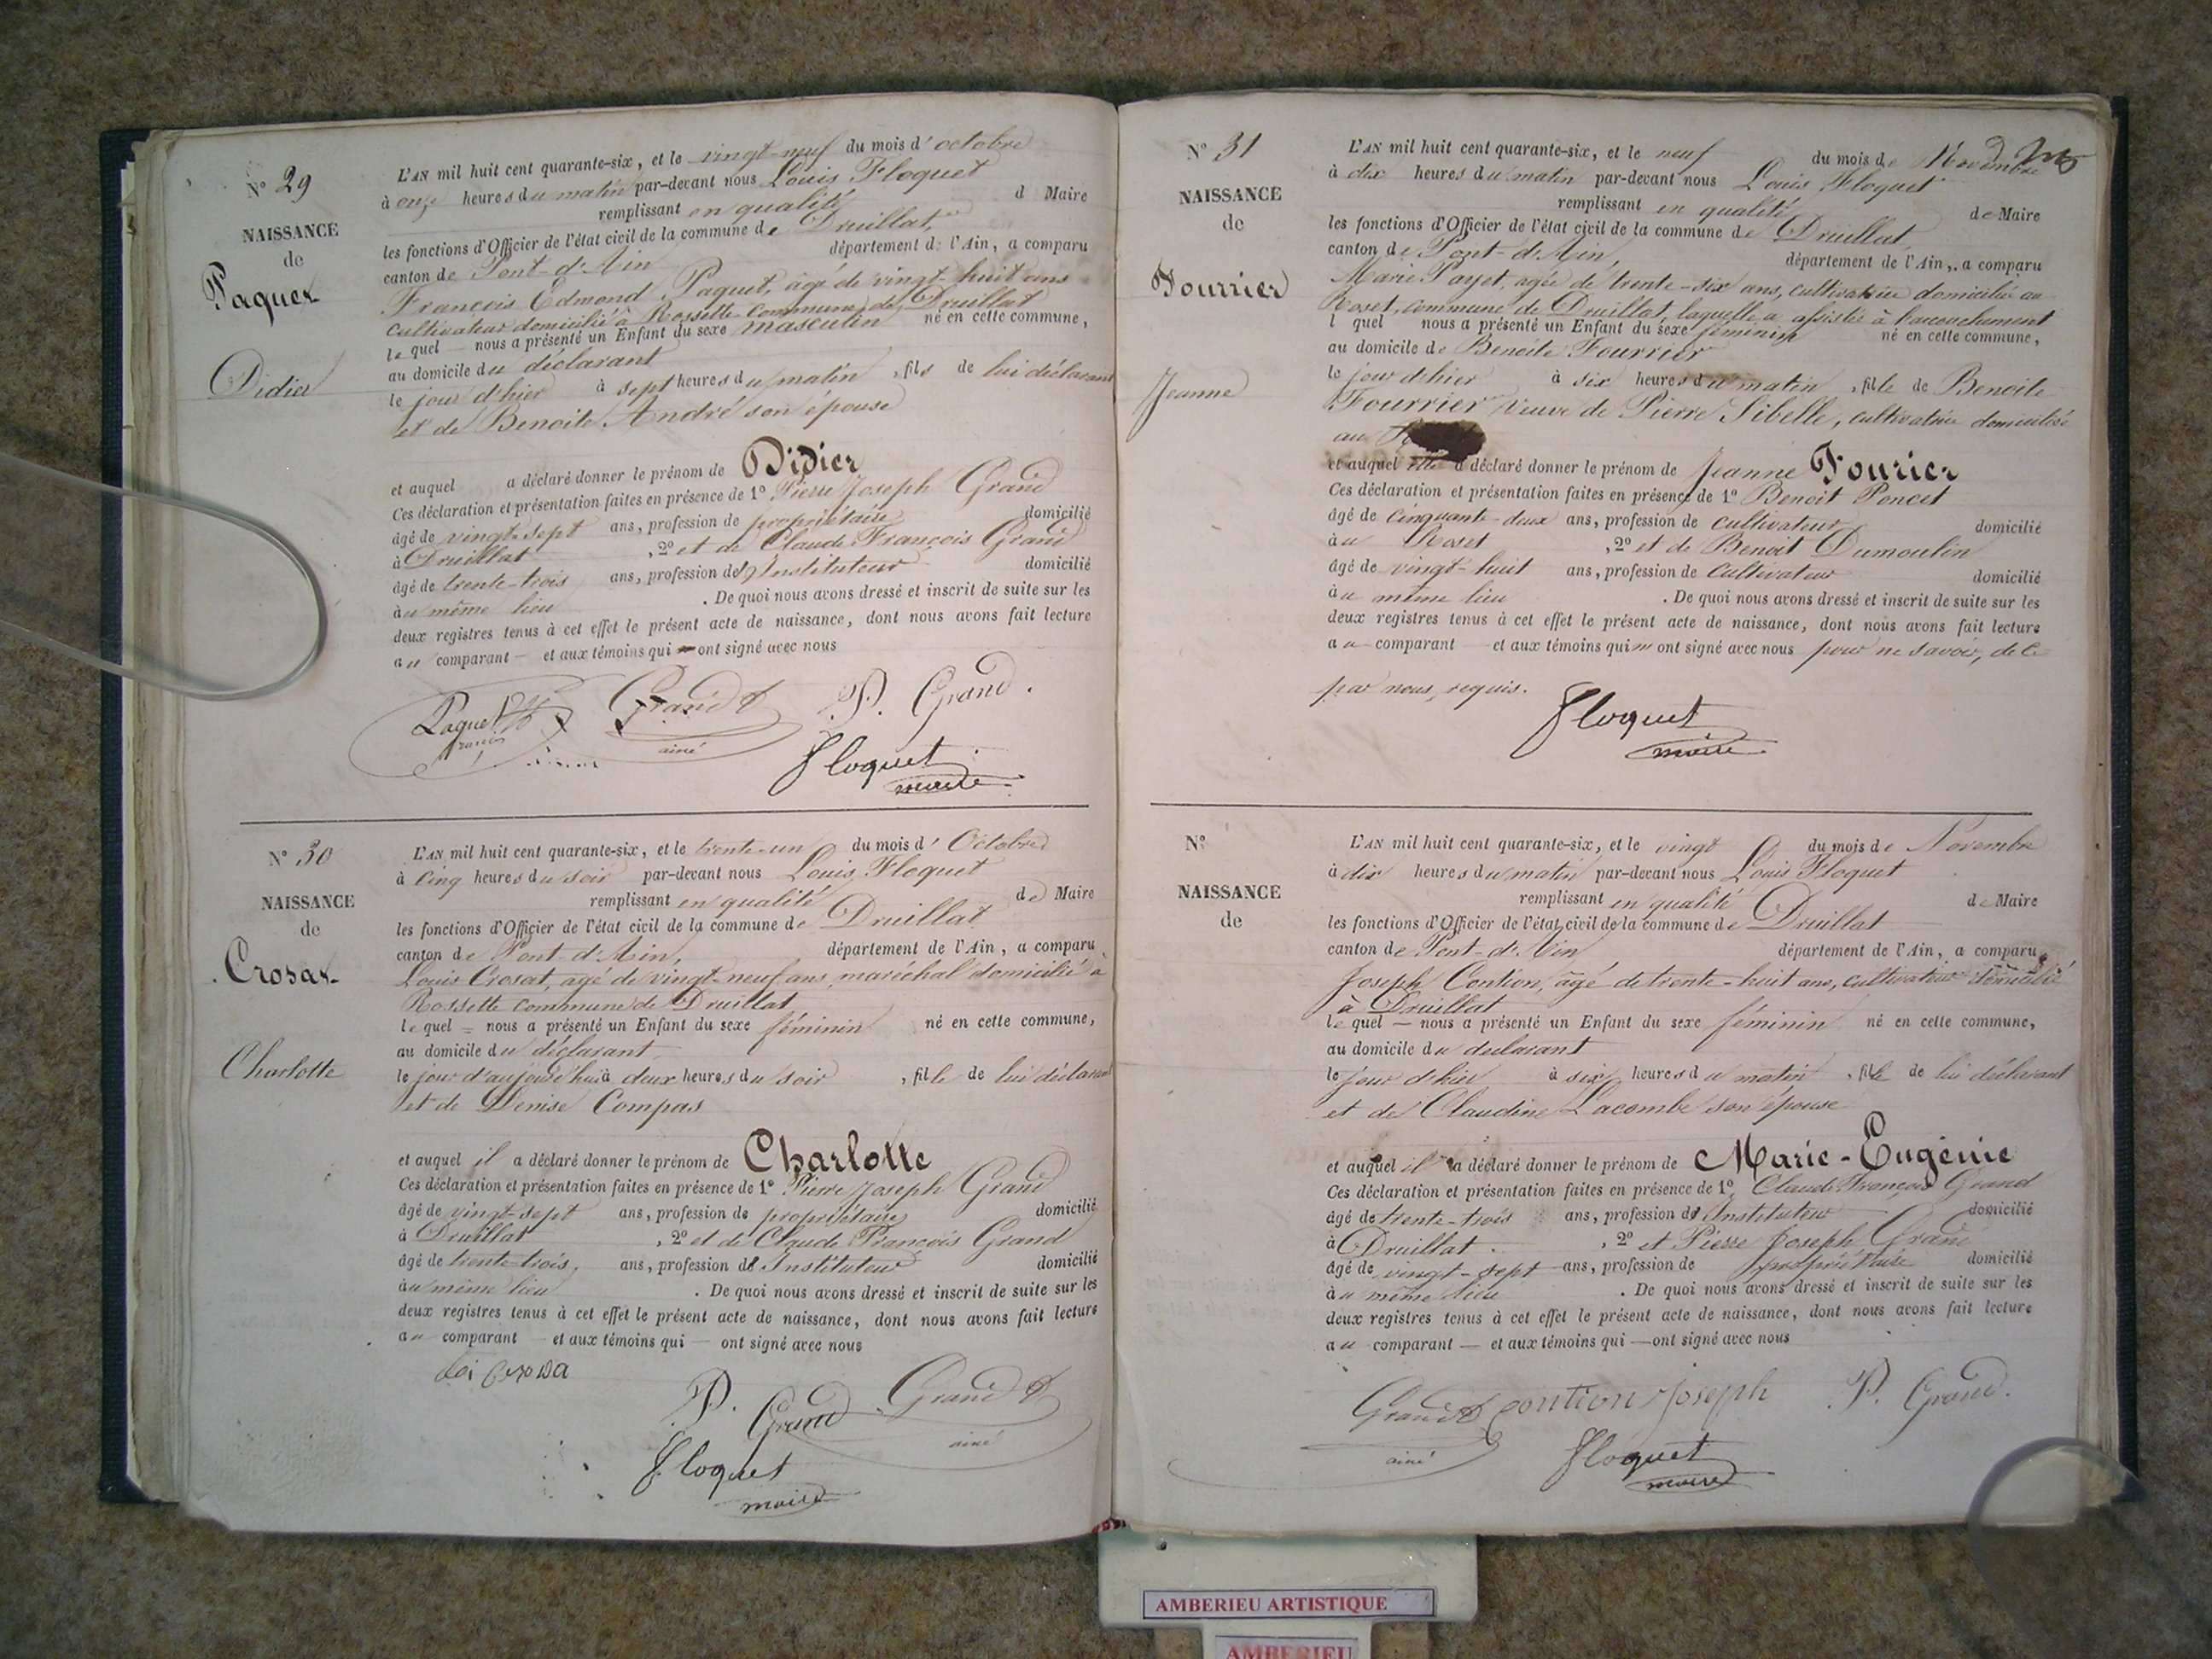 N° 29
NAISSANCE
de
Paquet
Didier
L'AN mil huit cent quarante-six, et le vingt-neuf du mois d'octobre
à onze heures du matin par-devant nous Louis Floquet
remplissant en qualité d Maire
les fonctions d'Officier de l'état civil de la commune de Druillat,
canton de Pont-d'Ain département de l'Ain, a comparu
François Edmond Paquet, âgé de vingt-huit ans
cultivateur domicilié à Rossette commune de Druillat
lequel — nous a présenté un Enfant du sexe masculin né en cette commune,
au domicile du déclarant
le jour d'hier à sept heures du matin, fils de lui déclarant
et de Benoite André son épouse
et auquel a déclaré donner le prénom de Didier
Ces déclaration et présentation faites en présence de 1° Pierre Joseph Grand
âgé de vingt-sept ans, profession de propriétaire domicilié
à Druillat, 2° et de Claude François Grand
âgé de trente-trois ans, profession d'Instituteur domicilié
au même lieu. De quoi nous avons dressé et inscrit de suite sur les
deux registres tenus à cet effet le présent acte de naissance, dont nous avons fait lecture
au comparant — et aux témoins qui — ont signé avec nous
Paquet Grand P. Grand.
ainé
Floquet
maire
N° 30
NAISSANCE
de
Crosat
Charlotte
L'AN mil huit cent quarante-six, et le trente-un du mois d'Octobre
à cinq heures du soir par-devant nous Louis Floquet
remplissant en qualité de Maire
les fonctions d'Officier de l'état civil de la commune de Druillat
canton de Pont-d'Ain, département de l'Ain, a comparu
Louis Crosat, agé de vingt-neuf ans, maréchal domicilié à
Rossette commune de Druillat
lequel — nous a présenté un Enfant du sexe féminin né en cette commune,
au domicile du déclarant
le jour d'aujourd'hui à deux heures du soir, fille de lui déclarant
et de Denise Compas
et auquel il a déclaré donner le prénom de Charlotte
Ces déclaration et présentation faites en présence de 1° Pierre Joseph Grand
âgé de vingt-sept ans, profession de propriétaire domicilié
à Druillat, 2° et de Claude François Grand
âgé de trente-trois, ans, profession d'Instituteur domicilié
au même lieu. De quoi nous avons dressé et inscrit de suite sur les
deux registres tenus à cet effet le présent acte de naissance, dont nous avons fait lecture
au comparant — et aux témoins qui — ont signé avec nous
P. Grand Grand
ainé
Floquet
maire
N° 31
NAISSANCE
de
Fourrier
Jeanne
L'AN mil huit cent quarante-six, et le neuf du mois de Novembre
à dix heures du matin par-devant nous Louis Floquet
remplissant en qualité de Maire
les fonctions d'Officier de l'état civil de la commune de Druillat
canton de Pont-d'Ain, département de l'Ain, a comparu
Marie Payet, agée de trente-six ans, cultivatrice domiciliée au
Roset, commune de Druillat, laquelle a assistée à l'accouchement
l quel nous a présenté un Enfant du sexe féminin né en cette commune,
au domicile de Benoite Fourrier
le jour d'hier à six heures du matin, fille de Benoite
Fourrier veuve de Pierre Sibelle, cultivatrice domiciliée
au
et auquel elle a déclaré donner le prénom de Jeanne Fourier
Ces déclaration et présentation faites en présence de 1° Benoit Poncet
âgé de cinquante-deux ans, profession de cultivateur domicilié
au Roset, 2° et de Benoit Dumoulin
âgé de vingt-huit ans, profession de cultivateur domicilié
au même lieu. De quoi nous avons dressé et inscrit de suite sur les
deux registres tenus à cet effet le présent acte de naissance, dont nous avons fait lecture
au comparant et aux témoins qui n'ont signé avec nous pour ne savoir, de ce
par nous requis.
Floquet
maire
N°
NAISSANCE
de
L'AN mil huit cent quarante-six, et le vingt du mois de Novembre
à dix heures du matin par-devant nous Louis Floquet
remplissant en qualité de Maire
les fonctions d'Officier de l'état civil de la commune de Druillat
canton de Pont-d'Ain département de l'Ain, a comparu
Joseph Contion, âgé de trente-huit ans, cultivateur domicilié
à Druillat
lequel — nous a présenté un Enfant du sexe féminin né en cette commune,
au domicile du declarant
le jour d'hier à six heures du matin, fille de lui déclarant
et de Claudine Lacombe son épouse
et auquel il a déclaré donner le prénom de Marie-Eugénie
Ces déclaration et présentation faites en présence de 1° Claude François Grand
âgé de trente-trois ans, profession d'Instituteur domicilié
à Druillat. , 2° et Pierre Joseph Grand
âgé de vingt-sept ans, profession de propriétaire domicilié
au même lieu. De quoi nous avons dressé et inscrit de suite sur les
deux registres tenus à cet effet le présent acte de naissance, dont nous avons fait lecture
au comparant — et aux témoins qui — ont signé avec nous
Grand contion joseph P. Grand.
ainé
Floquet
maire
AMBERIEU ARTISTIQUE
AMBERIEU